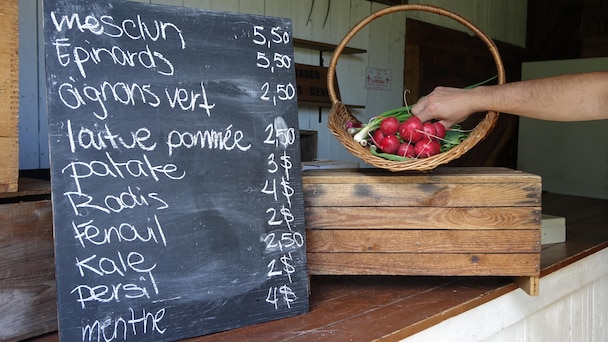 mesclun 5,50
Épinards 5,50
oignons vert 2,50
laitue pommée 2,50
patate 3$
Radis 4$
fénouil 2$
Kale 2,50
persil 2$
menthe 4$